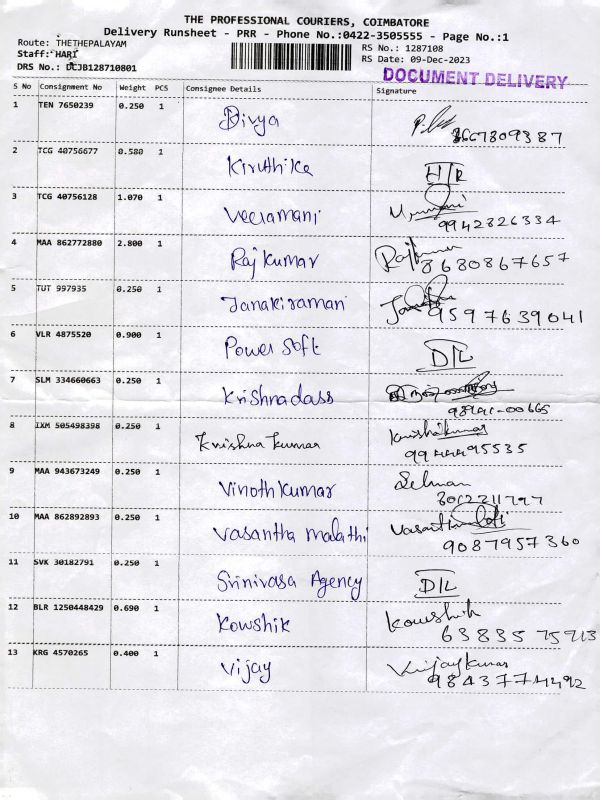 THE PROFESSIONAL COURIERS, COIMBATORE
Delivery Runsheet - PRR - Phone No.:0422-3505555 - Page No.:1
Route: THETHEPALAYAM
RS No.: 1287108
Staff: HARI
RS Date: 09-Dec-2023
DRS No.: DCJB128710801
DOCUMENT DELIVERY
S No Consignment No Weight PCS Consignee Details Signature
1 TEN 7650239 0.250 1 Divya
2 TCG 40756677 0.580 1 Kiruthika H/R
3 TCG 40756128 1.070 1 Veeramani
9942826334
4 MAA 862772880 2.800 1 Rajkumar Rajkumar
8680867657
5 TUT 997935 0.250 1 Janakiraman
9597639041
6 VLR 4875520 0.900 1 Power Soft D/L
7 SLM 334660663 0.250 1 Krishnadass
8 IXM 505498398 0.250 1 Krishna kumar Krishnakumar
9944495535
9 MAA 943673249 0.250 1 Vinoth Kumar Selman
10 MAA 862892893 0.250 1 Vasantha malathi
9087957360
11 SVK 30182791 0.250 1 Srinivasa Agency D/L
12 BLR 1250448429 0.690 1 Kowshik Kowshik
63835 75913
13 KRG 4570265 0.400 1 Vijay Vijaykumar
9843774492